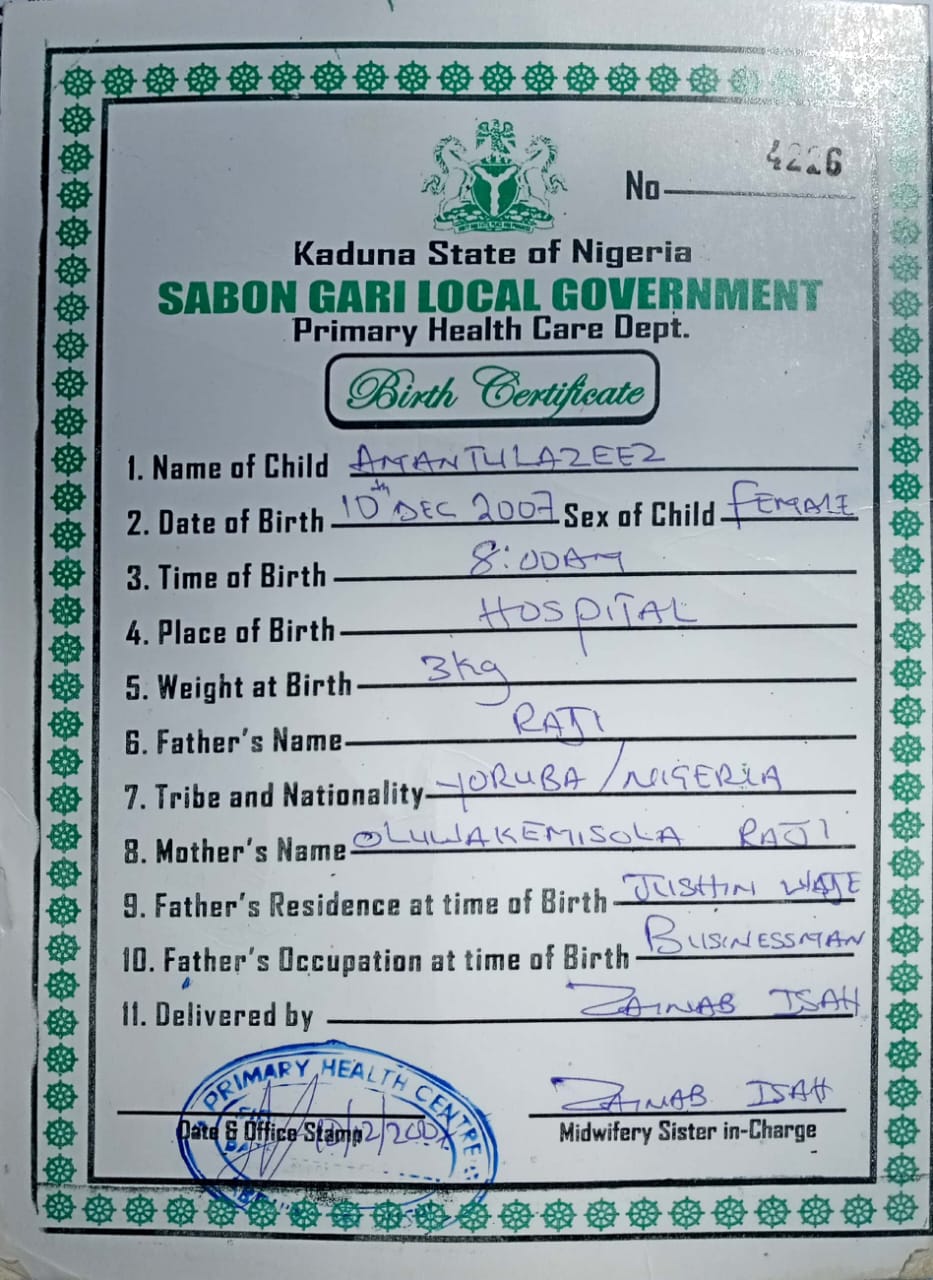 No 4226
Kaduna State of Nigeria
SABON GARI LOCAL GOVERNMENT
Primary Health Care Dept.
Birth Certificate
1. Name of Child AMANTULAZEEZ
2. Date of Birth 10th DEC 2007 Sex of Child FEMALE
3. Time of Birth 8:00AM
4. Place of Birth HOSPITAL
5. Weight at Birth 3kg
6. Father's Name RAJI
7. Tribe and Nationality YORUBA / NIGERIA
8. Mother's Name OLUWAKEMISOLA RAJI
9. Father's Residence at time of Birth JUSHIN WAJE
10. Father's Occupation at time of Birth BUSINESSMAN
11. Delivered by ZAINAB ISAH
PRIMARY HEALTH CENTRE
ZAINAB ISAH
Date & Office Stamp
Midwifery Sister in-Charge